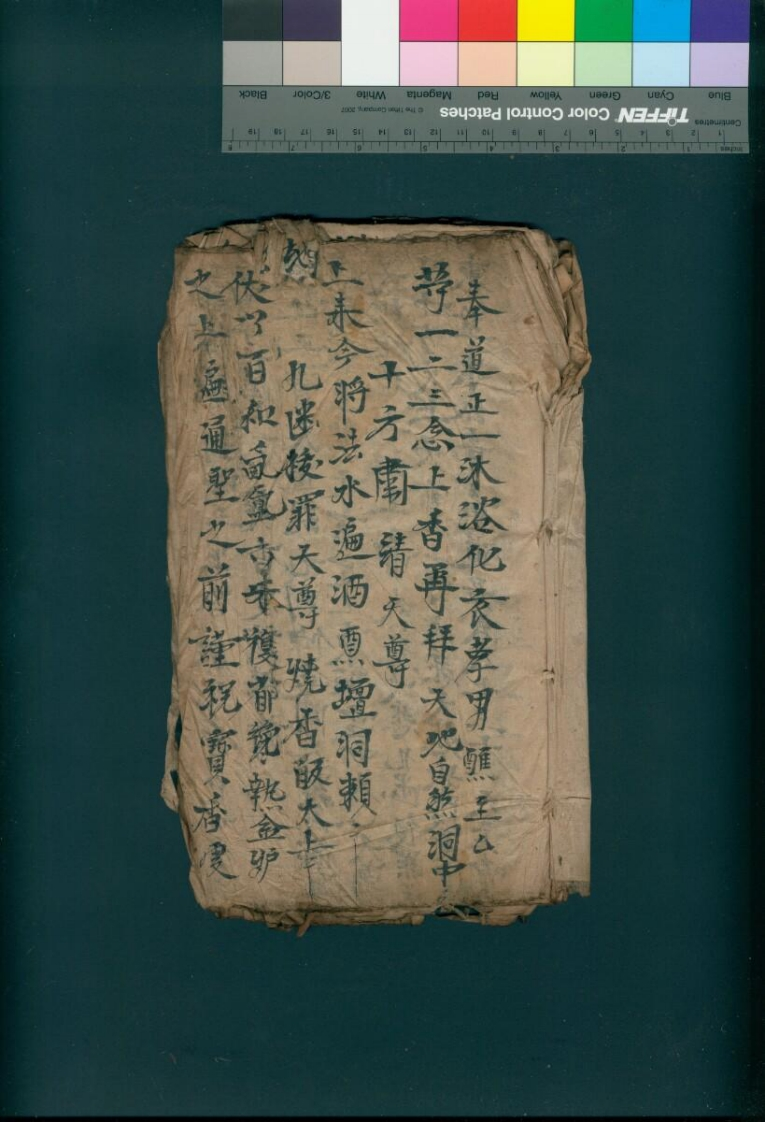 Blue Cyan Green Yellow Red Magenta White 3/Color Black
TIFFEN Color Control Patches © The Tiffen Company, 2007
Centimetres 1 2 3 4 5 6 7 8 9 10 11 12 13 14 15 16 17 18 19
Inches 1 2 3 4 5 6 7 8
奉道正一沐浴化衣孝男醮主乙
等一二三念上香再拜天地自然洞中
十方肅請天尊
上来今將法水遍洒 壇洞賴
九幽拔罪天尊 燒香皈太上
伏以百和 六 執金炉
之上遍通聖之前謹祝寶香